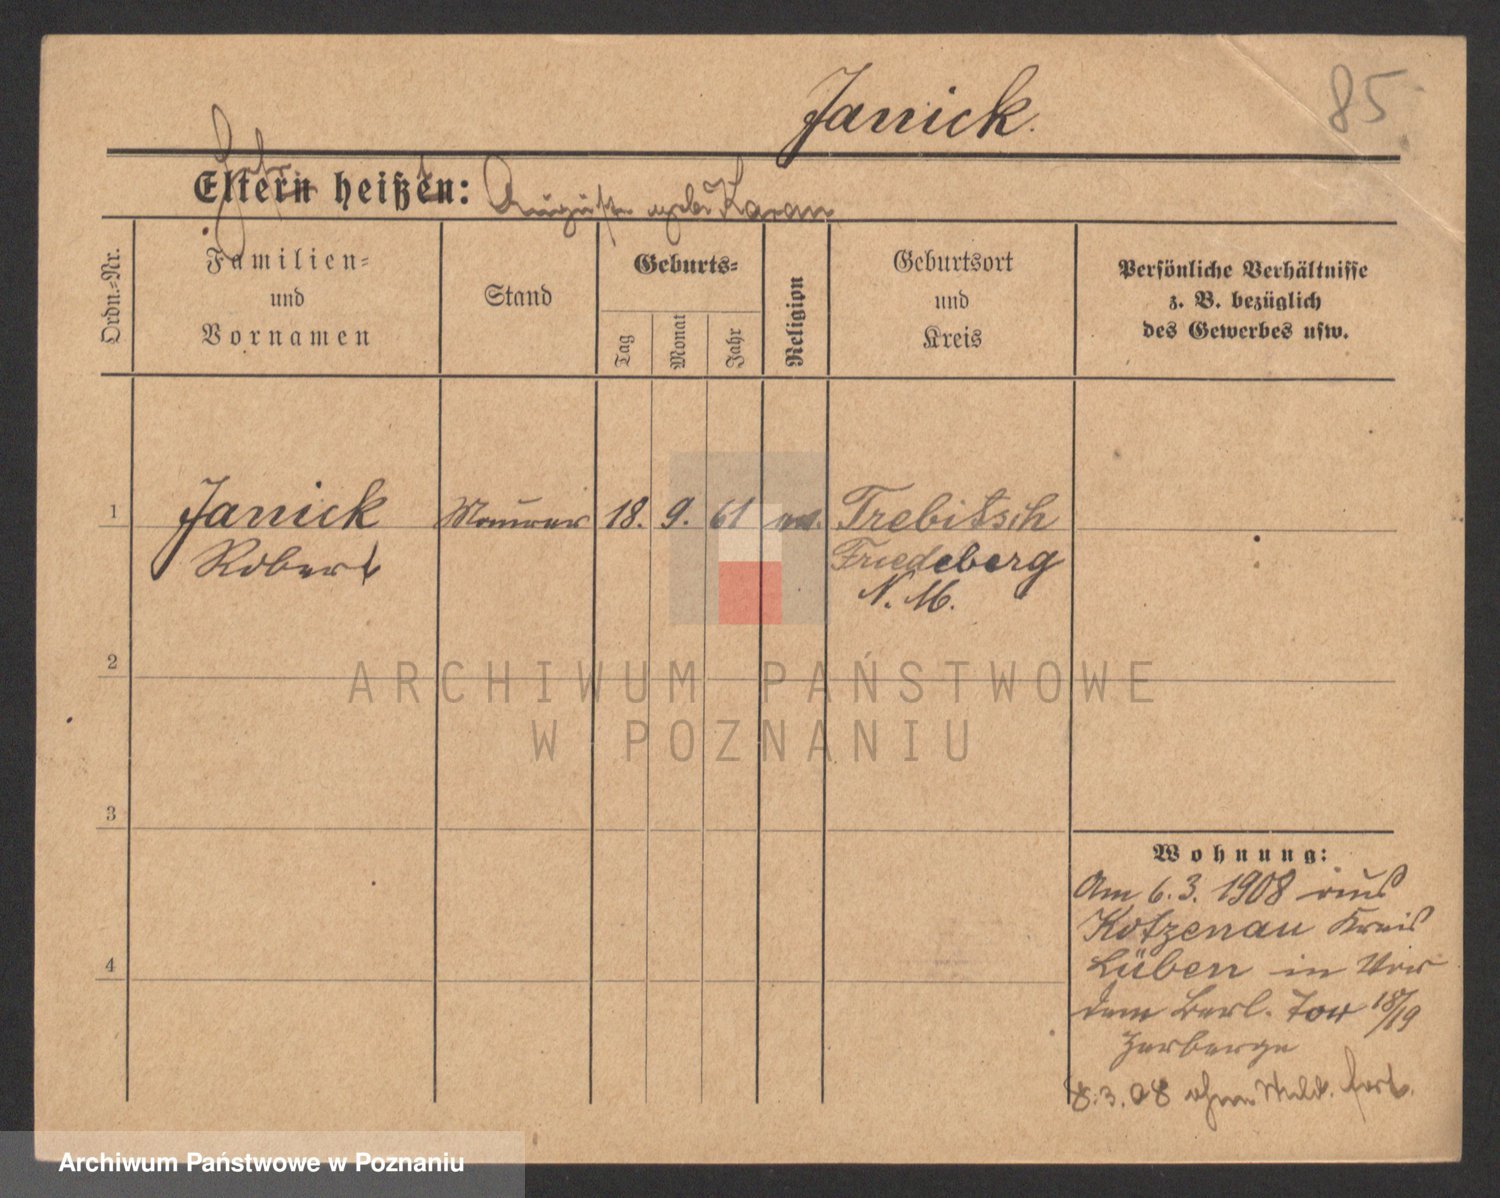 85
Janick.
Eltern heißen: Auguste geb. Karau
Ordn.-Nr.
Familien-
und
Vornamen
Stand
Geburts-
Tag
Monat
Jahr
Religion
Geburtsort
und
Kreis
Persönliche Verhältnisse
z. B. bezüglich
des Gewerbes usw.
1 Janick Maurer 18. 9. 61 ev. Trebitsch
Robert Friedeberg
N. M.
2
ARCHIWUM PAŃSTWOWE
W POZNANIU
3
Wohnung:
Am 6.3. 1908 aus
Kotzenau Kreis
4
Lüben in Vor
dem Berl. Tor 18/19
Herberge
8.3.08 ohne Meld. fort.
Archiwum Państwowe w Poznaniu